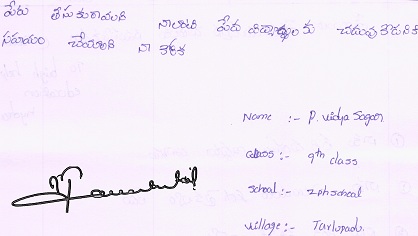 పేరు తీసుకురావాలి నాలాంటి పేద విద్యార్థులకు చదువుకొనుటకి
సహాయం చేయాలని నా కోరిక
Name :- P. Vidya Sagar
class :- 9th class
school :- zphschool
village :- Tarlupadu.